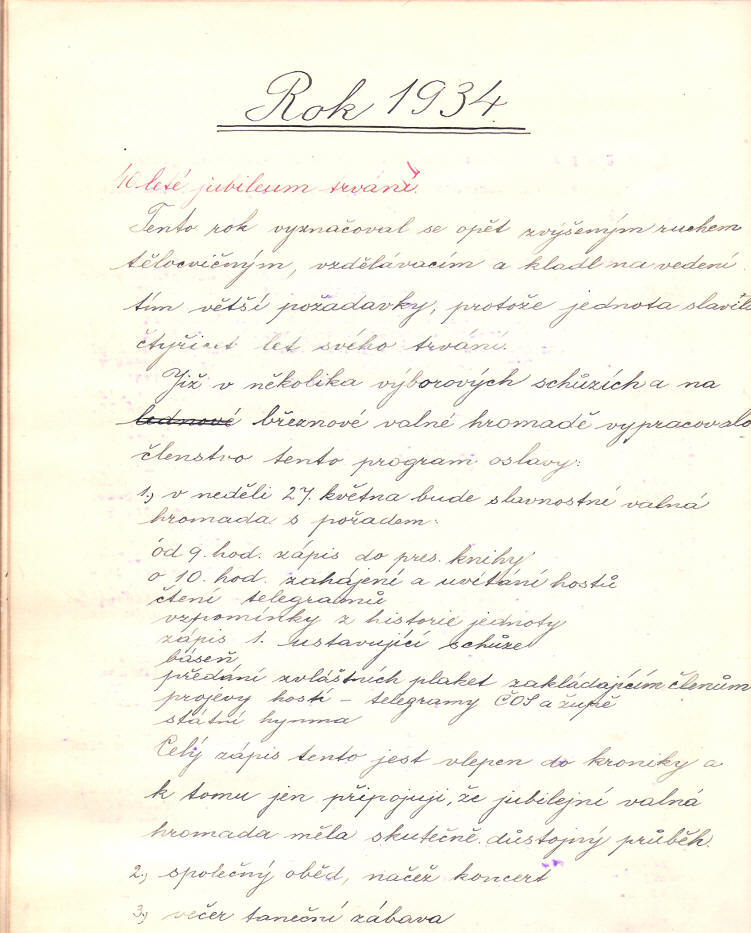 Rok 1934.
40 leté jubileum trvání.
Tento rok vyznačoval se opět zvýšeným ruchem
tělocvičným, vzdělávacím a kladl na vedení
tím větší požadavky, protože jednota slavila
čtyřicet let svého trvání.
Již v několika výborových schůzích a na
lednové březnové valné hromadě vypracovalo
členstvo tento program oslavy:
1., v neděli 27. května bude slavnostní valná
hromada s pořadem:
od 9. hod. zápis do pres. knihy
o 10. hod. zahájení a uvítání hostů
čtení telegramů
vzpomínky z historie jednoty
zápis 1. ustavující schůze
báseň
předání zvláštních plaket zakládajícím členům
projevy hostí – telegramy ČOS a župě
státní hymna
Celý zápis tento jest vlepen do kroniky a
k tomu jen připojuji, že jubilejní valná
hromada měla skutečně důstojný průběh.
2., společný oběd, načež koncert
3., večer taneční zábava